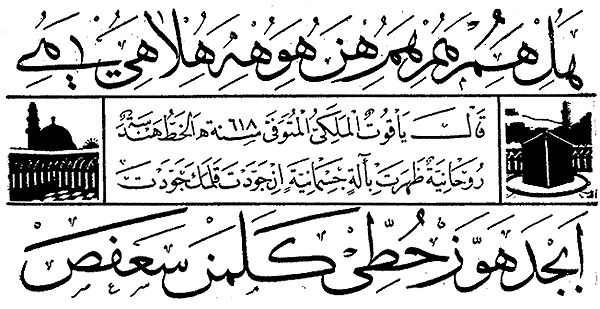 هل هم هن هو هه هلا هي
قَالَ يَاقُوتُ الْمَلَكِيُّ الْمُتَوَفّٰى سَنَة ٦١٨ ه اَلْخَطُّ هَنْدَسَةٌ
رُوحَانِيَّةٌ ظَهَرَتْ بِآلَةٍ جِسْمَانِيَّةٍ اِنْ جَوَّدْتَ قَلَمَكَ جَوَّدْتَ
اَبْجَدْ هَوَّزْ حُطِّي كَلَمَنْ سَعَفَصْ